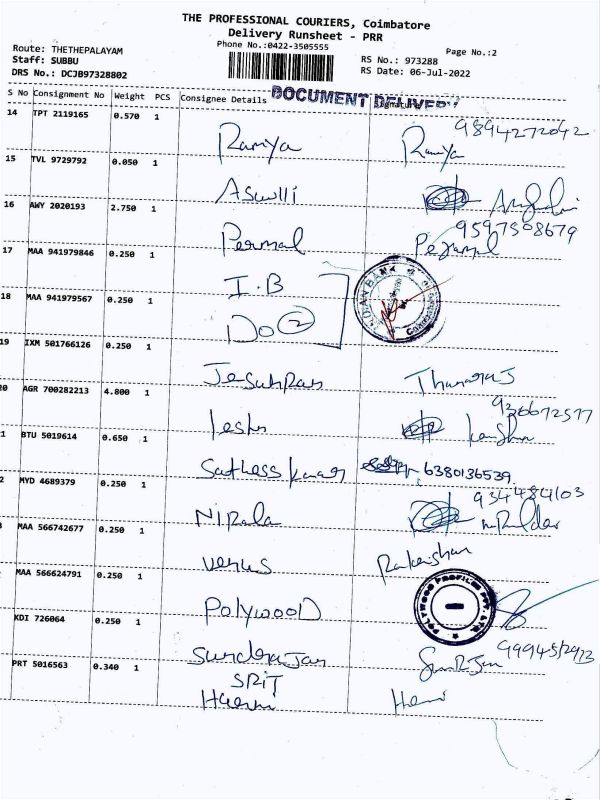 THE PROFESSIONAL COURIERS, Coimbatore
Delivery Runsheet - PRR
Phone No.:0422-3505555
Page No.:2
Route: THETHEPALAYAM
Staff: SUBBU
DRS No.: DCJB97328802
RS No.: 973288
RS Date: 06-Jul-2022
S No Consignment No Weight PCS Consignee Details
DOCUMENT DELIVERY
14 TPT 2119165 0.570 1 Ramya Ramya 9894272042
15 TVL 9729792 0.050 1
16 AWY 2020193 2.750 1 Permal Perumal 9597508679
17 MAA 941979846 0.250 1 I.B
18 MAA 941979567 0.250 1 Do 2
19 IXM 501766126 0.250 1
20 AGR 700282213 4.800 1
1 BTU 5019614 0.650 1 6380136539
2 MYD 4689379 0.250 1 Nirala 934484103
3 MAA 566742677 0.250 1 Venus
MAA 566624791 0.250 1 Polywood POLYWOOD PROFILES PVT. LTD.
KDI 726064 0.250 1
PRT 5016563 0.340 1 SRIT